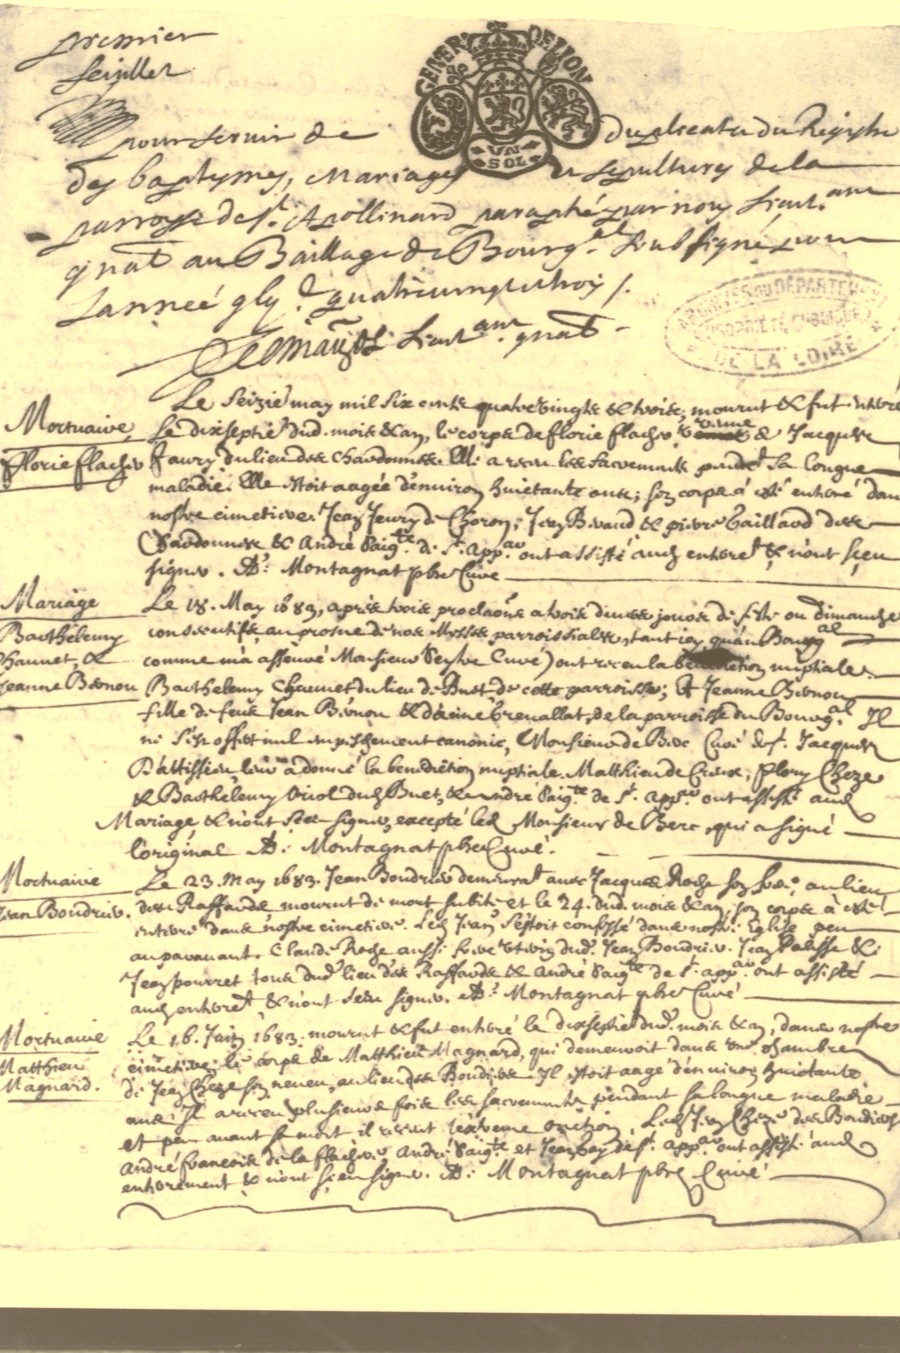 premier
feüillet
GENER DE LION
UN SOL
pour servir de duplicata du Registre
des baptymes, Mariages et sepultures de la
parroysse de st. Apollinard paraphé par nous Lieut.ant
gnal au Bailliage de Bourg.al soubsigné pour
Lannee quatrevingt et troys /.
Lieut.ant gnal
ARCHIVES DU DÉPARTEMENT
PROPRIÉTÉ PUBLIQUE
DE LA LOIRE
Mortuaire
Florie flachier
Le Seizie may mil six cents quatre vingts & trois; mourut & fut enterre
Le dixseptie dud. mois & an, le corps de florie flachier, veuve de Jacques
faury du lieu des Chardonnes. Elle a receu les Sacrements pendt sa longue
maladie. Elle estoit aagée d'environ huictante ans; son corps à esté enterré dans
nostre cimetiere. Jean Jeury de Choron; Jean & pierre Gaillard des
Chardonnes & André de st. app.ar ont assisté aud enterret & n'ont sceu
signer. A. Montagnat pbre Curé
Mariage
Barthelemy
Chaunet, &
Jeanne Besnou
Le 18. May 1683, apres trois proclaons a trois divers jours de feste ou dimanche
consecutifs, au prosne de nos Messes parroissiales, tant icy, qu'au Bourg.al
comme m'a asseuré Monsieur Seytre Curé) ont receu la benediction nuptiale
Barthelemy Chaunet du lieu de Buet de cette parroisse; Et Jeanne Besnou
fille de feus Jean Besnou & d'Anne Crevallat, de la parroisse du Bourg.al Il
ne s'est offert nul empeschement canonic, Monsieur de Berc Curé de st. Jacques
D'attissieu leur a donné la benediction nuptiale. Matthieu de Creux, flory Cheze
& Barthelemy Oriol dud Buet, & André de st. app.ar ont assisté aud
Mariage & n'ont sceu signer, excepté led Monsieur de Berc, qui a signé
l'original A. Montagnat pbre Curé.
Mortuaire
Jean Boudrier.
Le 23. May 1683. Jean Boudrier demeurat avec Jacques Roche son frere, au lieu
des Raffards, mourut de mort subite et le 24. dud. mois & an, son corps à esté
enterré dans nostre cimetiere. Led Jean s'estoit confessé dans nostre Eglise peu
auparavant. Claude Roche aussi frere dud. Jean Boudrier. Jean Palisse &
Jean pourret tous dud lieu des Raffards & André de st. app.ar ont assisté
aud enterret, & n'ont sceu signer. A. Montagnat pbre Curé
Mortuaire
Matthieu
Magnard.
Le 16. Juin 1683. mourut & fut enterré le dixseptie dud. mois & an, dans nostre
cimetiere, le corps de Matthieu Magnard, qui demeuroit dans une chambre
de Jean Cheze son neveu, au lieu des Boudries Il estoit aagé d'environ huictante
ans. Il a receu plusieurs fois les sacrements pendant sa longue maladie
et peu avant sa mort il receut l'extreme onction, Led Jean Cheze des Boudries
André francois de la flachere André et Jean de st. app.ar ont assisté aud
enterrement & n'ont sceu signer. A. Montagnat pbre Curé